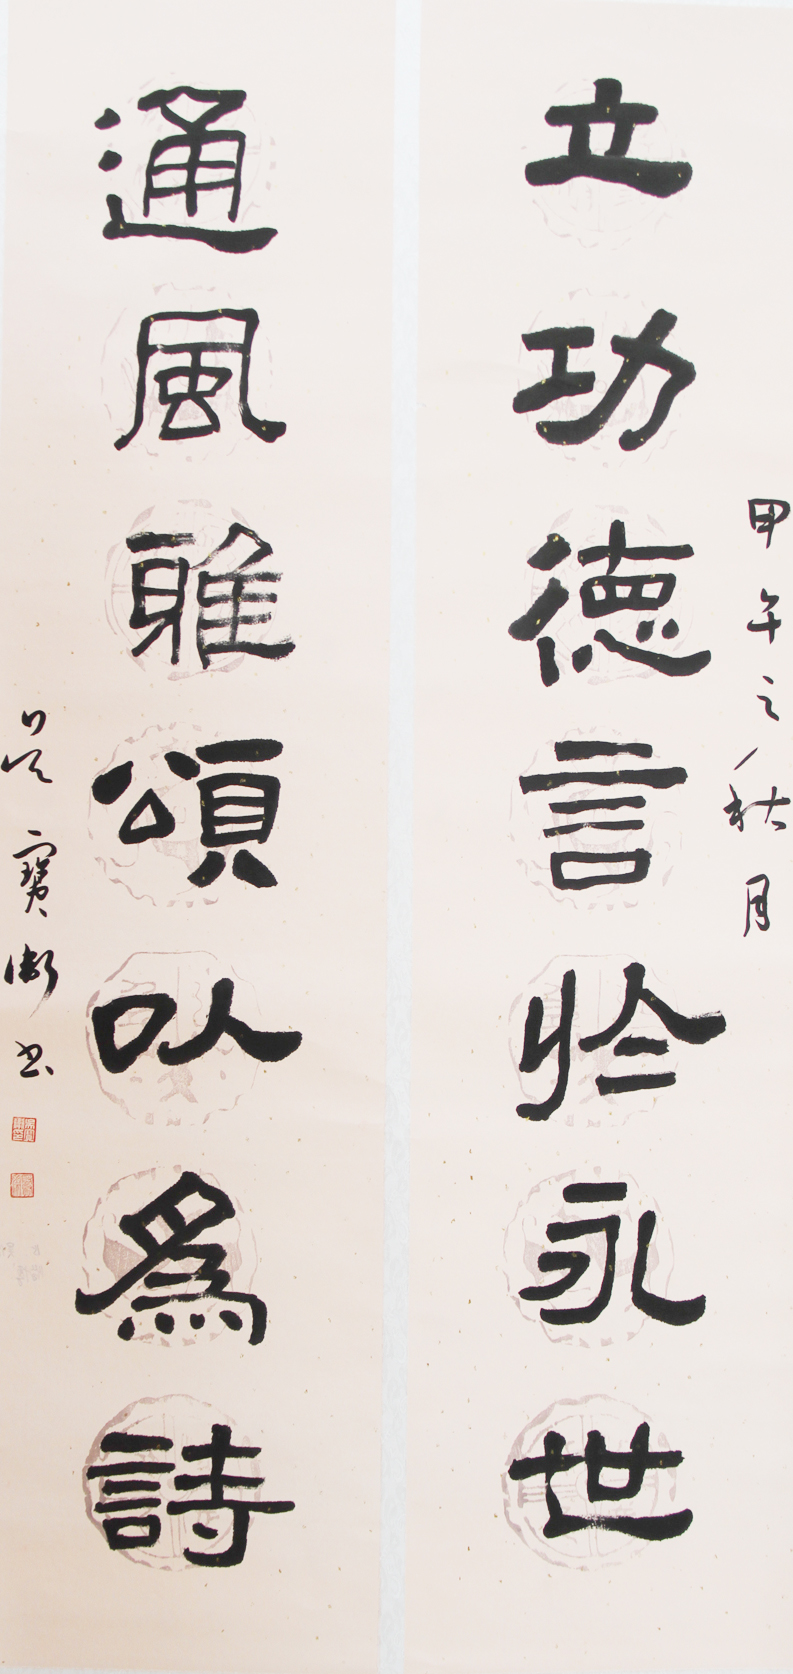 甲午之秋月
立功德言於永世
通風雅頌以爲詩
吴寶书